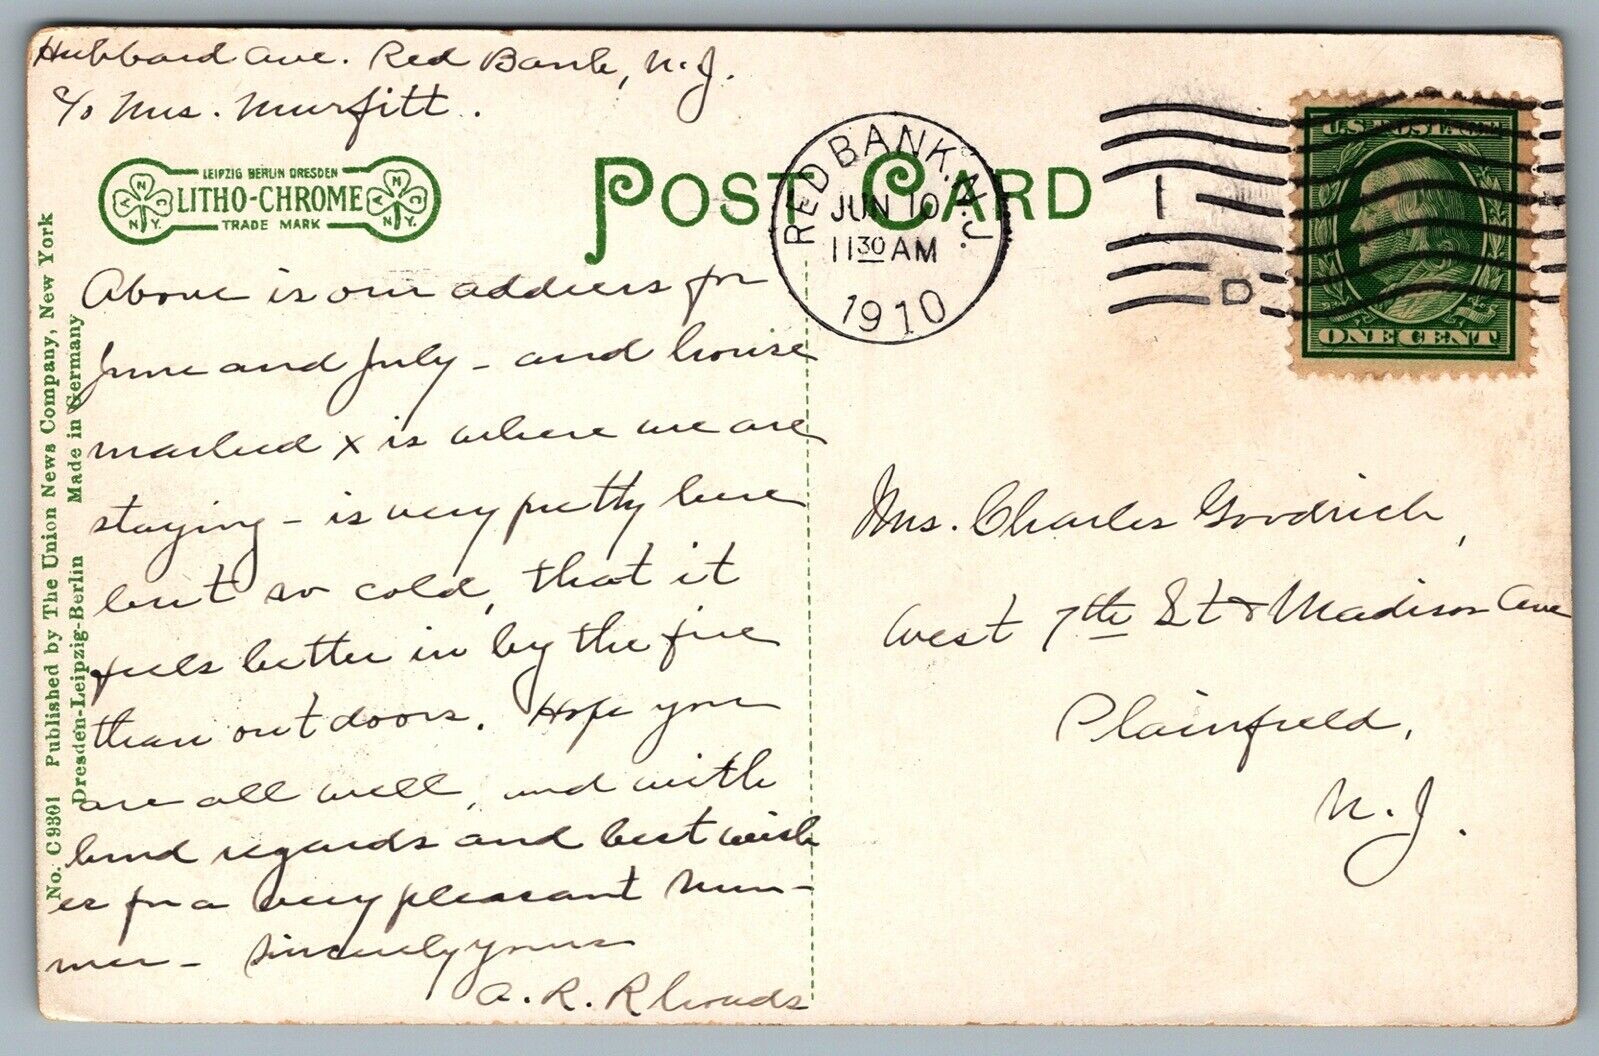 Hubbard Ave. Red Bank, N.J.
c/o Mrs. Murfitt.
LEIPZIG BERLIN DRESDEN
LITHO-CHROME
TRADE MARK
ANC N.Y.
ANC N.Y.
POST CARD
RED BANK, N.J.
JUN 10
11 30 AM
1910
1
D
U.S. POSTAGE
ONE CENT
No. C 9301 Published by The Union News Company, New York
Dresden-Leipzig-Berlin Made in Germany
Above is our address for
June and July - and house
marked x is where we are
staying - is very pretty here
but so cold, that it
feels better in by the fire
than out doors. Hope you
are all well, and with
kind regards and best wish
es for a very pleasant sum-
mer - Sincerely yours
A. R. Rhoads
Mrs. Charles Goodrich,
West 7th St & Madison Ave
Plainfield,
N.J.